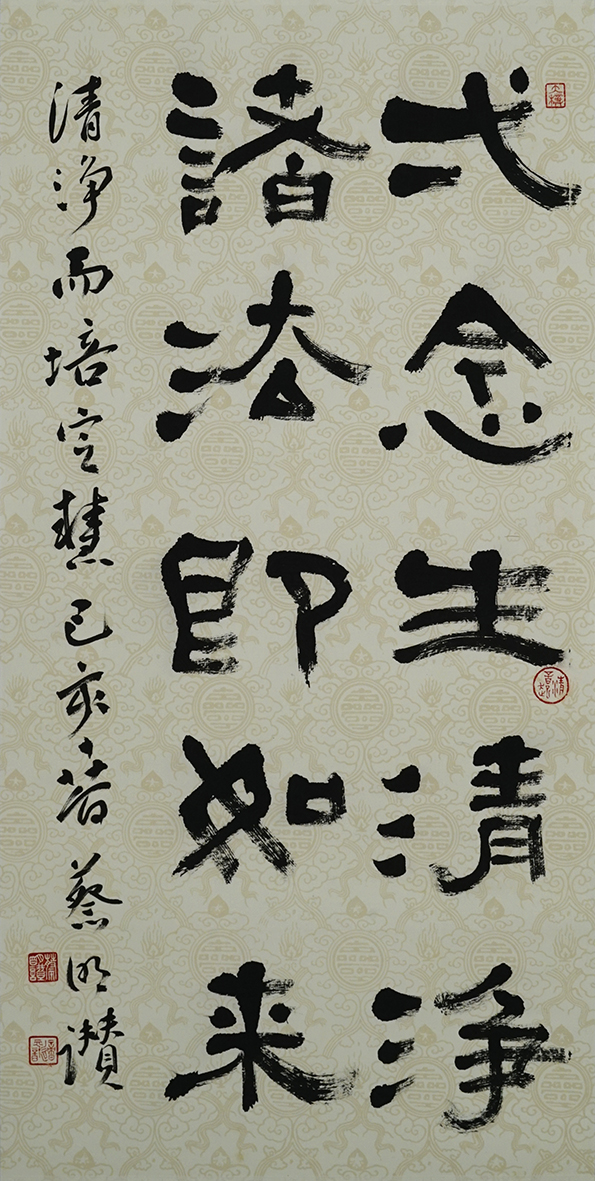 弌念生清淨
諸法即如来
清淨而培定慧己亥春蔡明讚